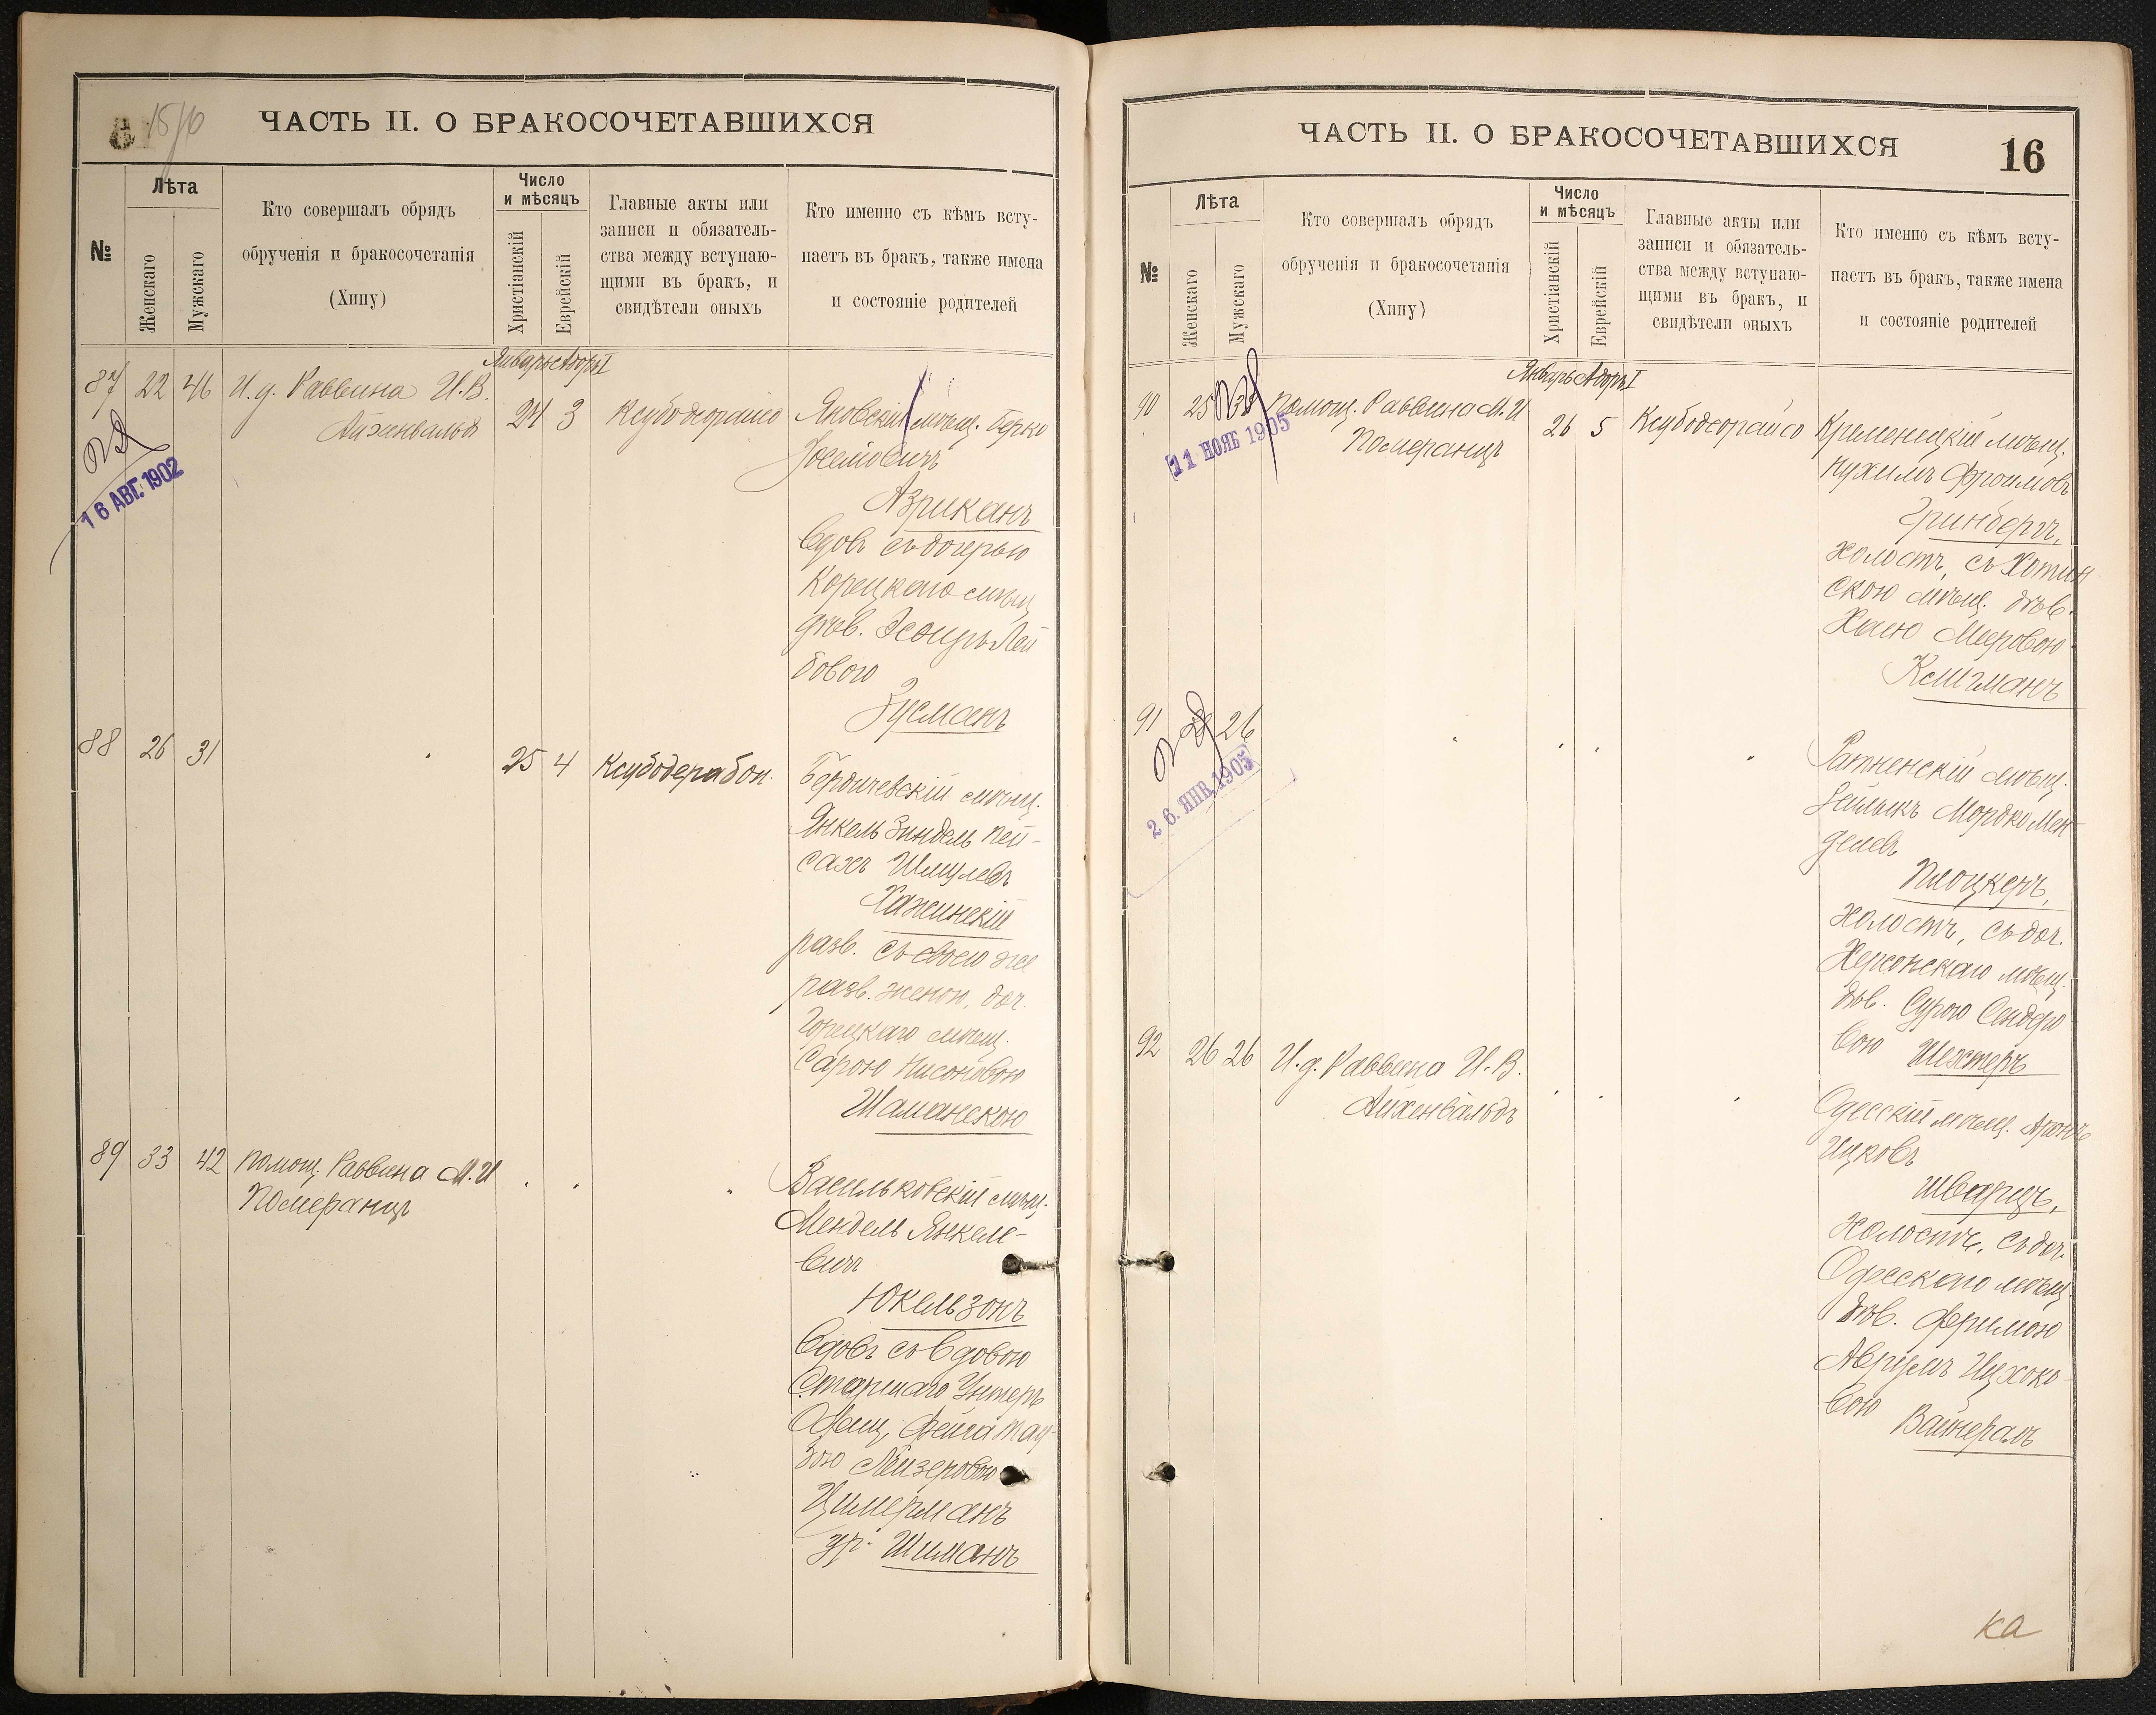 15/16
ЧАСТЬ II. О БРАКОСОЧЕТАВШИХСЯ
№
Лѣта
Женскаго
Мужскаго
Кто совершалъ обрядъ
обрученія и бракосочетанія
(Хипу)
Число
и мѣсяцъ
Христіанскій
Еврейскій
Главные акты или
записи и обязатель-
ства между вступаю-
щими въ бракъ, и
свидѣтели оныхъ
Кто именно съ кѣмъ всту-
паетъ въ бракъ, также имена
и состояніе родителей
Январь Адоръ I
87 22 46 И.д. Раввина И.В.
Айхенвальдъ
24 3 Ксубодеорайсо
Яновскій мѣщ. Берко
Іоселіовичъ
Азриканъ
вдовъ съ дочерью
Корецкаго мѣщ
дѣв. Эсѳирь Лей
бовою
Зусманъ
16 АВГ. 1902
88 26 31 " 25 4 Ксубодерабон.
Бердичевскій мѣщ.
Янкель Зиндель Пей-
сахъ Шмулевъ
Хажинскій
разв. съ своею же
разв. женою, доч.
Сарою Нисоновою
Шаманскою
89 33 42 Помощ. Раввина М.И
Померанцъ
" " "
Васильковскій мѣщ.
Мендель Янкеле-
вичъ
Юкельзонъ
вдовъ съ вдовою
Старшаго Унтеръ
Офиц. Фейга Тау-
бою Лейзеровою
Цимерманъ
ур. Шиманъ
ЧАСТЬ II. О БРАКОСОЧЕТАВШИХСЯ
16
№
Лѣта
Женскаго
Мужскаго
Кто совершалъ обрядъ
обрученія и бракосочетанія
(Хипу)
Число
и мѣсяцъ
Христіанскій
Еврейскій
Главные акты или
записи и обязатель-
ства между вступаю-
щими въ бракъ, и
свидѣтели оныхъ
Кто именно съ кѣмъ всту-
паетъ въ бракъ, также имена
и состояніе родителей
Январь Адоръ I
90 25 Помощ. Раввина М.И
Померанцъ
26 5 Ксубодеорайсо
Кременецкій мѣщ.
Нухимъ Фроимовъ
Гринбергъ,
холостъ, съ Хотин
скою мѣщ. дѣв.
Хаею Мееровою
Клигманъ
11 НОЯБ 1905
91 26 " " " "
Ратненскій мѣщ.
Зейлыкъ Мордко Мен-
делевъ
Плоцкеръ,
холостъ, съ доч.
Херсонскаго мѣщ.
дѣв. Сурою Сендеро
вою Шехтеръ
26. ЯНВ. 1905
92 26 26 И.д. Раввина И.В.
Айхенвальдъ
" " "
Одесскій мѣщ. Аронъ
Ицковъ
Шварцъ,
Холостъ, съ доч.
Одесскаго мѣщ.
дѣв. Фримою
Аврумъ Ицхоко-
вою Вайнералъ
ка